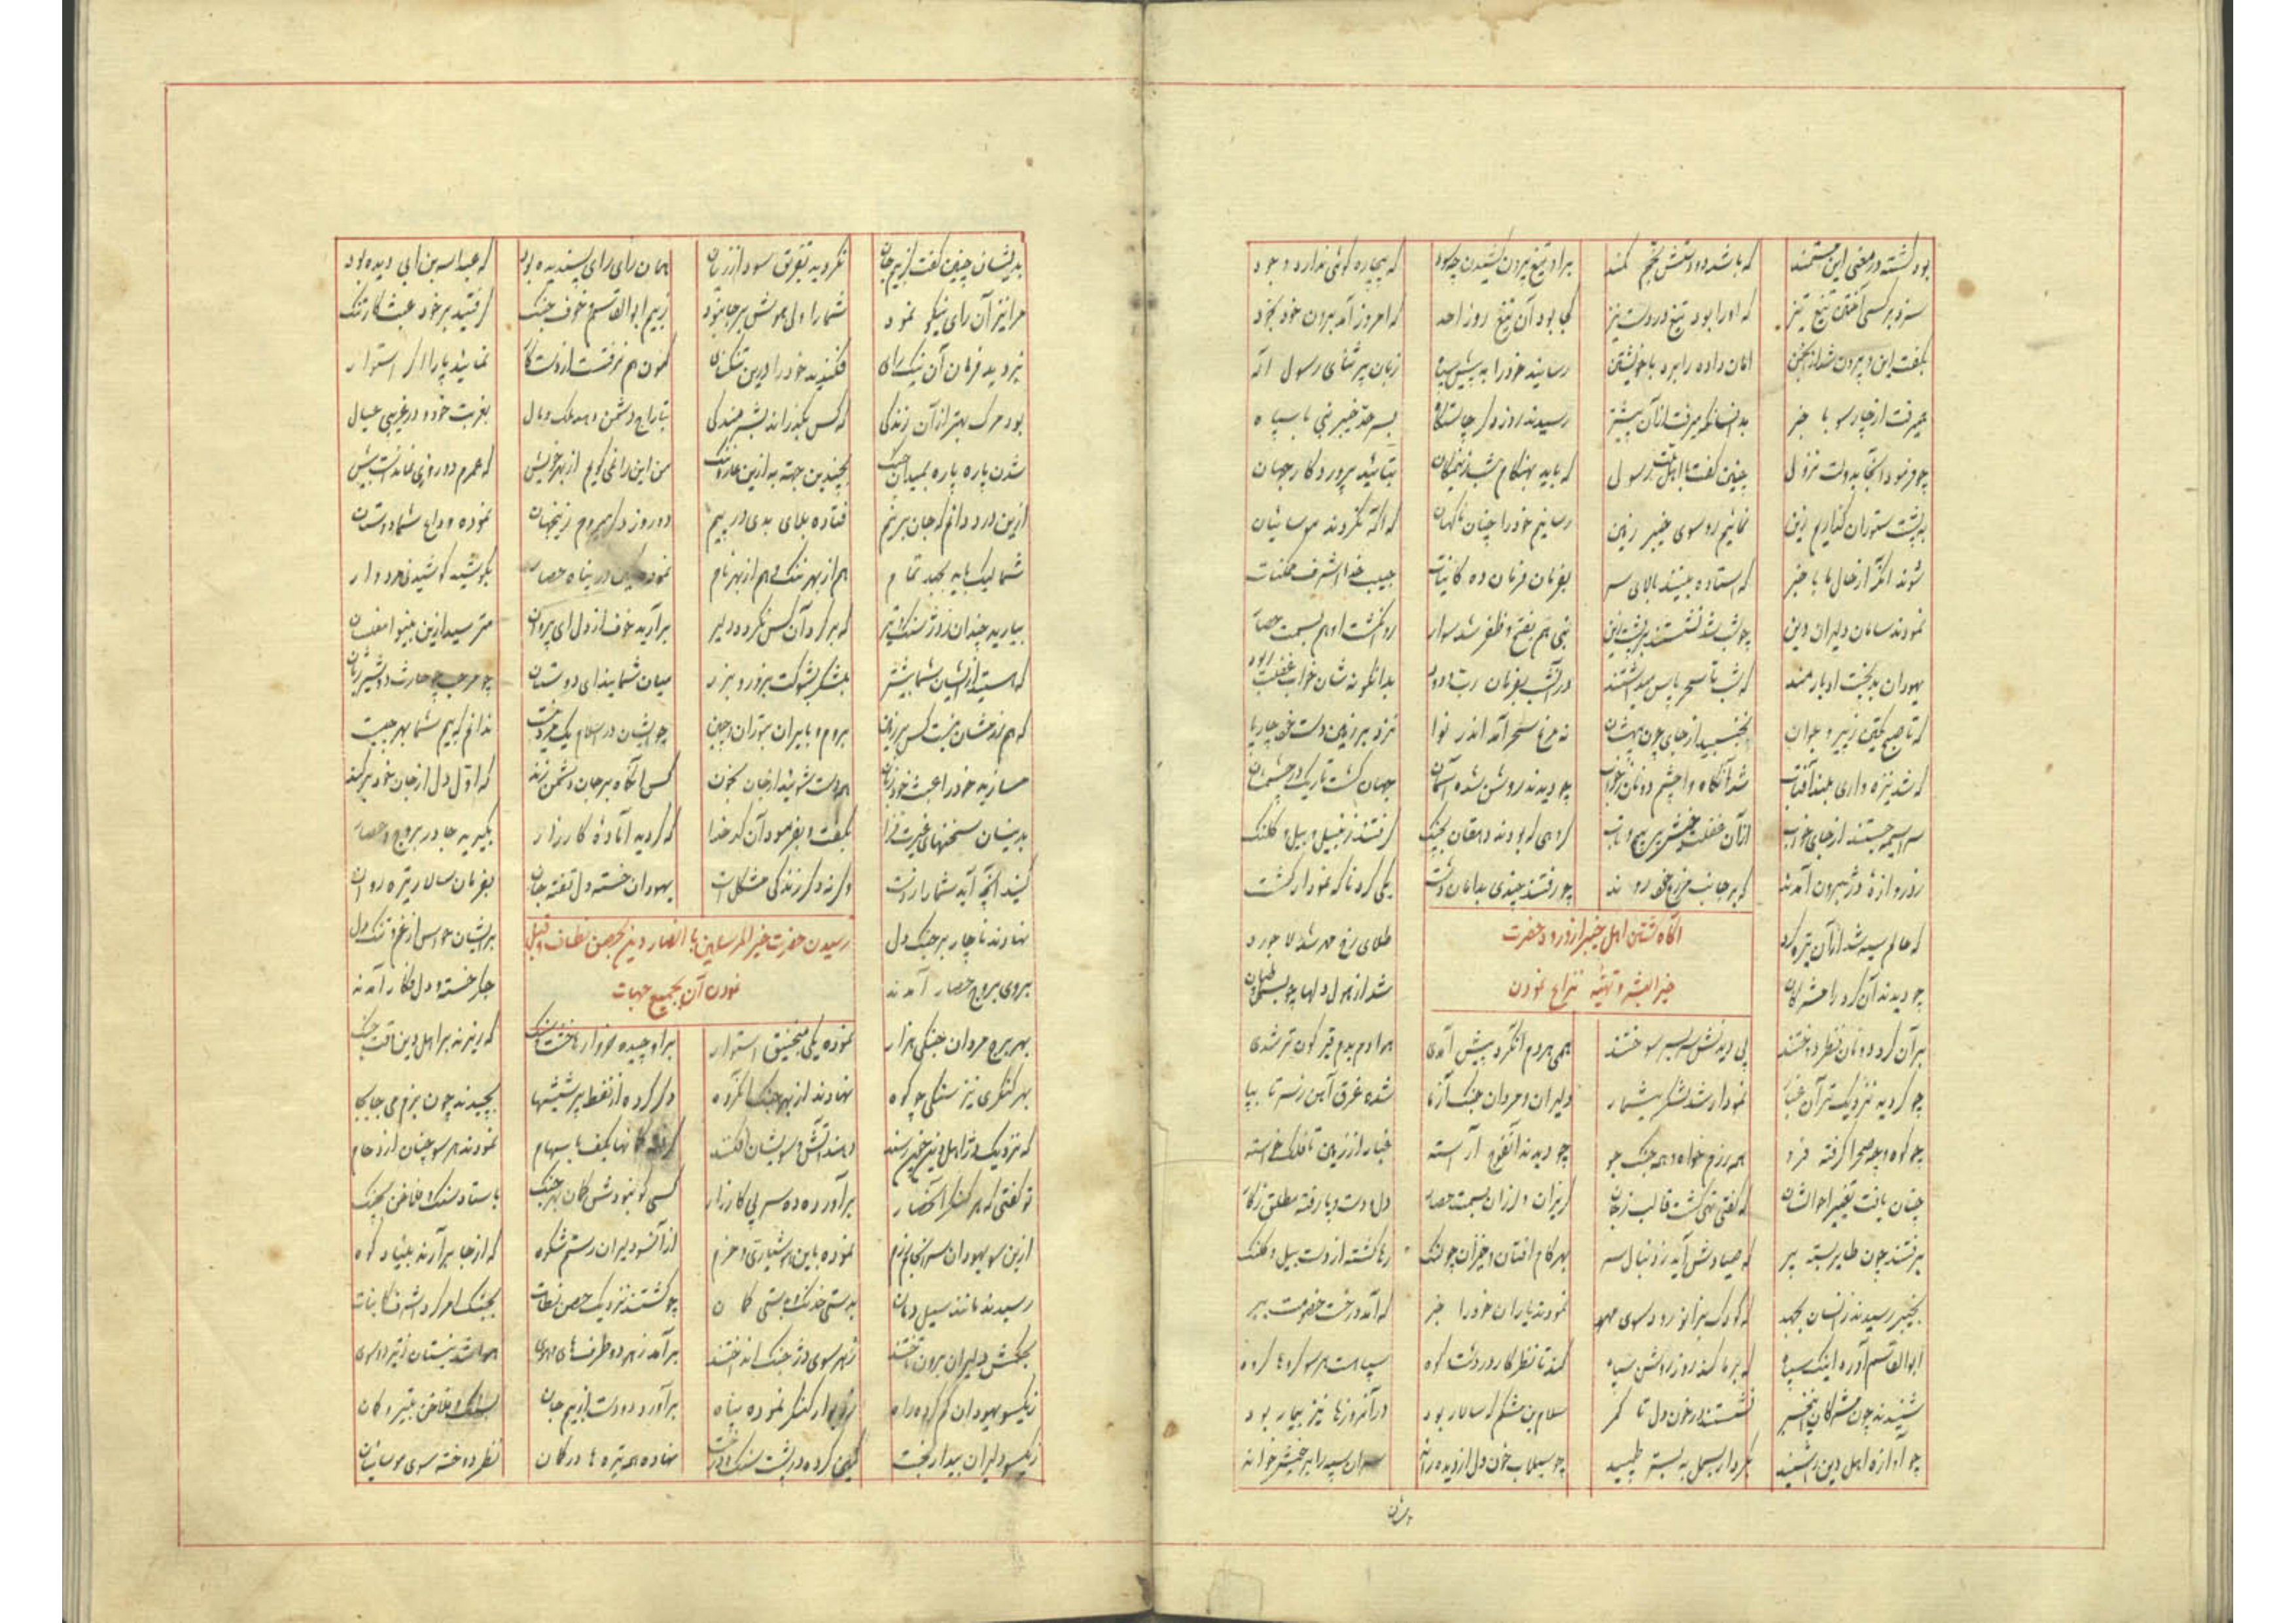 بود کشته در معنی این مستمند که باشد دو دستش بخم کمند برو تیغ بیرون کشیدن چه سود که بیچاره کوئی ندارد وجود
سزد بر کسی آختن تیغ تیز که او را بود تیغ در دست نیز کجا بود آن تیغ روز احد که امروز آمد برون خود بخود
بگفت این و بیرون شد از انجمن امان داده را برد با خویشتن رسانید خود را به پیش سپاه زبان پر ثنای رسول اله
همیرفت از چارسو با خبر رسیدند روز دگر چاشتگاه بسرحد خیبر نبی با سپاه
چو فرمود آنجا بدولت نزول چنین گفت با اهل ملت رسول که باید بهنگام شب بتائید پرورد کار جهان
به پشت ستوران گذاریم زین نمائیم رو سوی خیبر زمین رسانیم خود را چنان ناگهان که آگه نگردند موسائیان
شوند آنگه از حال ما با خبر که استاده بینند بالای سر بفرمان فرمان ده کائنات حبیب خدا اشرف ممکنات
نمودند سامان دلیران دین چو شب شد نشستند بر پشت زین نبی هم بفتح و ظفر شد سوار روان گشت او هم بسمت حصار
یهودان بدبخت ادبارمند که شب تا سحر پاس میداشتند در آنشب بفرمان رب ودود بدانگونه شان خواب غفلت ربود
که تا صبح یکتن ز پیر و جوان نجنبید از جای چون بیهشان نه مرغ سحر آمد اندر نوا نزد بر زمین دست و پا چارپا
که شد نیزه واری بلند آفتاب شد آنگاه وا چشم دونان ز خواب چو دیدند روشن شده آسمان جهان گشت تاریک در چشمشان
سراسیمه جستند از جای خواب از آن غفلت خویش در پیچ و تاب گروهی که بودند دهقان بجنگ گرفتند زنبیل و بیل و کلنگ
ز دروازهٔ دژ برون آمدند که بر جانب مزرع خود روند چو رفتند چندی بدامان دشت یکی گرد ناگه نمودار گشت
که عالم سیه شد از آن تیره گرد طلای رخ مهر شد لاجورد
آگاه شدن اهل خیبر از ورود حضرت
خیر البشر و تهیه نزاع نمودن
چو دیدند آن گرد را مشرکان شد از هول دلها چو بسمل طپان
بر آن گرد دونان نظر دوختند پی دیدنش سر بسر سوختند همی هر دم آنگرد پیش آمدی هوا دم بدم قیر گون تر شدی
چو گردید نزدیک تر آن غبار نمودار شد لشکر بیشمار دلیران و مردان جنگ آزما شده غرق آهن ز سر تا بپا
چو کوه و چه صحرا گرفته فرو همه رزم خواه و همه جنگ جو چو دیدند آنفوج آراسته غبار از زمین تا فلک خاسته
چنان یافت تغییر احوالشان که گفتی تهی گشت قالب ز جان گریزان و لرزان بسمت حصار دل و دست و پا رفته مطلق ز کار
برفتند چون طایر بسته پر که صیادش آید ز دنبال سر بهر گام افتان و خیزان چو لنگ رها گشته از دست بیل و کلنگ
بخیبر رسیدند زانسان بجهد که کودک بزانو رود سوی مهد نمودند یاران خود را خبر که آمد درخت خصومت ببر
ابو القاسم آورد اینک سپاه که بر ما کند روز روشن سیاه کند تا نظر کار در دشت و کوه سپاهست هر سو گروها گروه
شنیدند چون مشرکان این خبر نشستند در خون دل تا کمر سلام بن مشکم که سالار بود در آنروزها نیز بیمار بود
چو آوازهٔ اهل دین را شنید بکردار بسمل به بستر طپید چو سیلاب خون دل از دیده راند سران سپه را بر خویش خواند
بدیشان چنین گفت نکردید تفریق سود از زیان همان رای رای پسندیده بود که عبد الله بن ابی دیده بود
مرا نیز آن رای نیکو نمود شما را ولی هوش بر جا نبود ز بیم ابو القاسم و خوف جنگ گرفتید بر خود عبث کار تنگ
نبردید فرمان آن نیک رای فکندید خود را درین تنگنای کنون هم نرفتست از دست کار نمائید پا را استوار
بود مرگ بهتر از آن زندگی که کس بگذراند بشرمندگی بتاراج دشمن دهد ملک و مال بغربت خود و در غریبی عیال
شدن پاره پاره بمیدان جنگ بچندین جهت به ازین عار و ننگ من این را نمی گویم از بهر خویش که عمرم دو روزی نماندست بیش
ازین درد دانم که جان بر نیم فتاده بلای بدی در پیم دو روز دگر میروم زینجهان نموده وداع شما دوستان
شما لیک باید بجهد تمام هم از بهر ننگ و هم از بهر نام نموده در پناه حصار بکوشید کوشیدنی مردوار
بیارید چندان ز و سنگ و تیر که بر گرد آن کس نگردد دلیر برآرید خوف از دل ای پردلان مترسید ازین بینوا مفلسان
که هستید زایشان شما بیشتر بلشکر بشوکت بزور و بزر میان شمایند ای دوستان چو مرحب چو حارث دو شیر ژیان
که هم رزمشان نیست کس بر زمین بروم و بایران بتوران و چین چو ایشان در اسلام یک مرد نیست ندانم که بیم شما بهر چیست
مسازید خود را عبث خود زبون همه دست شوئید از جان کنون کس آنگاه بر جان دشمن زند که اول دل از جان خود بر کند
بدینسان سخنهای غیرت فزا بگفت و بفرمود آن کدخدا که گردید آمادهٔ کارزار بگیرید جا در بروج و حصار
کنید آنچه آید شما را ز دست و گرنه دگر زندگی مشکل است یهودان خسته دل تفته جان بفرمان سالار تیره روان
نهادند ناچار بر جنگ دل برایشان هراس از غم تنگ دل
رسیدن حضرت خیر المرسلین با انصار دین بحصن نطات و قتال
نمودن آن بجمیع جهات
بروی بروج حصار آمدند جگر خسته و دل فکار آمدند
بهر برج مردان جنگی هزار نموده یکی منجنیق استوار برو چیده خروار ها خشت و سنگ که ریزند بر اهل دین وقت جنگ
بهر کنگری نیز سنگی چو کوه نهادند از بهر جنگ آنگروه دگر کرده از نفط پر شیشها بچیدند چون بزم می جابجا
که نزدیک دژ اهل دین چون رسند دهند آتش و سویشان افکنند کمانها بکف با سهام نمودند هر سو چنان ازدحام
تو گفتی که هر کنگر آنحصار برآورده ده سر پی کارزار کسی کو نبودش کمان بهر جنگ باستاد سنگ و فلاخن بچنگ
ازین سو یهودان سر انجام رزم نموده باین هوشیاری و حزم از آنسو دلیران رستم شکوه که از جا برآرند بنیاد کوه
رسیدند مانند سیل دمان بدستی خدنگ و بدستی کمان چو گشتند نزدیک حصن نطات بجنگ امر کرد اشرف کاینات
بحکمش دلیران برون تاختند ز هر سوی دژ جنگ انداختند برآمد ز هر دو طرف های و هوی هوا شد نیستان ز تیر دو سوی
ز یکسو یهودان گم کرده راه ز دیوار کنگر نموده پناه برآورده دست از بیم جان بسنگ و فلاخن بتیر و کمان
ز یکسو دلیران بیدار بخت کمین کرده در پشت سنگ و درخت نهاده همه تیرها در کمان نظر دوخته سوی موسائیان